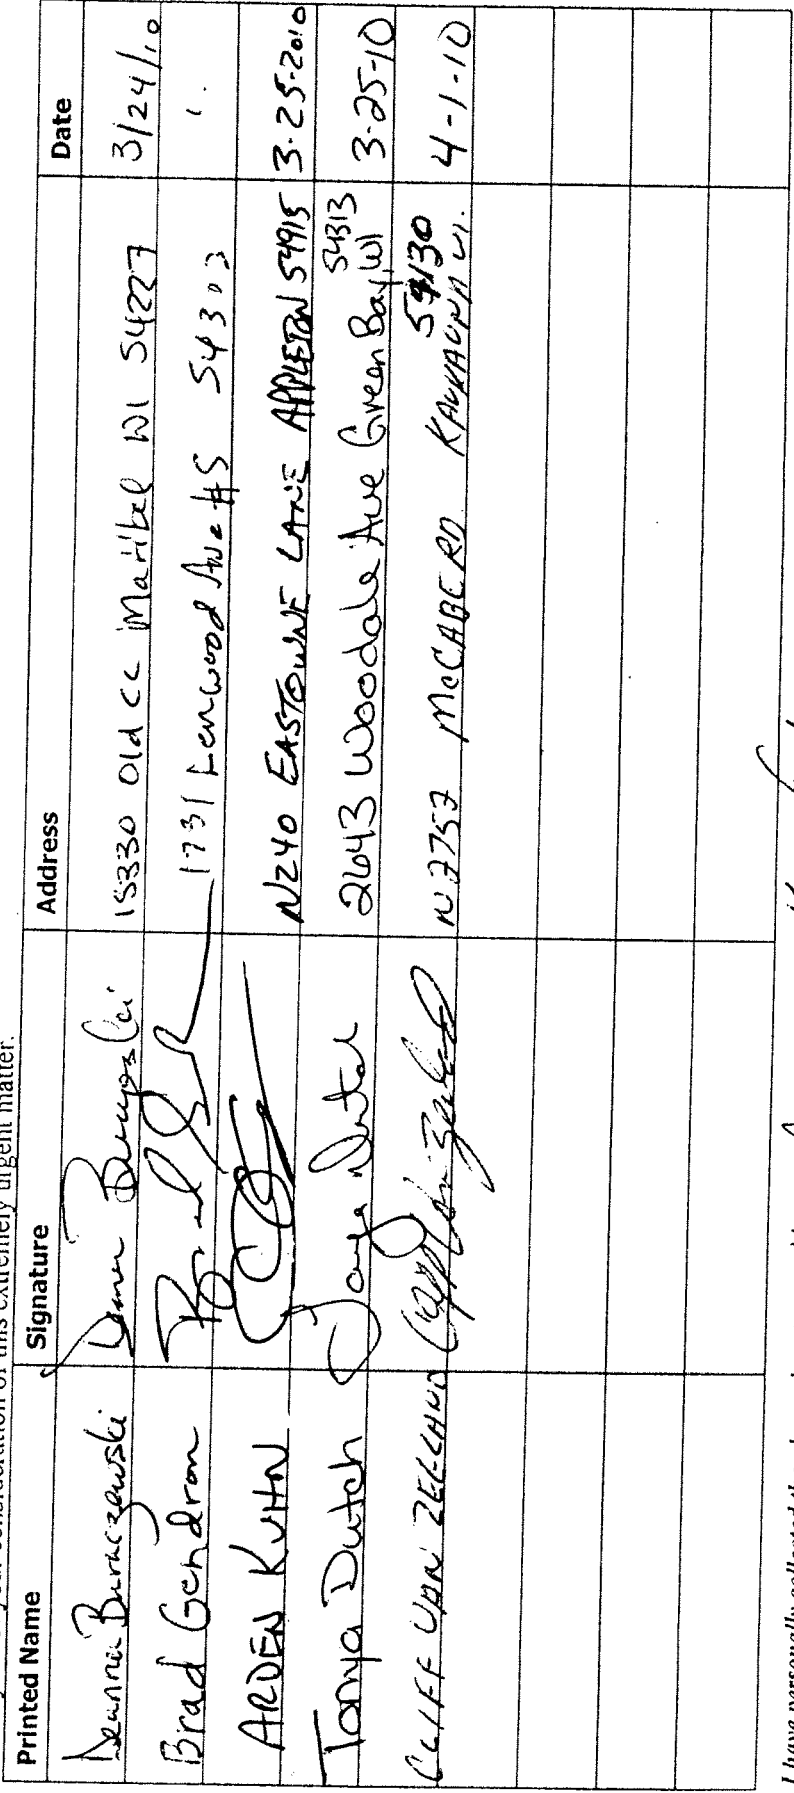 consideration of this extremely urgent matter.
Printed Name Signature Address Date
Deanna Buraczewski 15330 Old CC Maribel WI 54227 3/24/10
Brad Gendron 1731 Lenwood Ave #5 54303 ''
ARDEN KUHN N240 EASTOWNE LANE APPLETON 54915 3-25-2010
Tonya Dutch Tonya Dutch 2643 Woodale Ave Green Bay, WI 54313 3-25-10
CLIFF VAN ZEELAND N2757 McCABE RD KAUKAUNA WI. 54130 4-1-10
I have personally collected